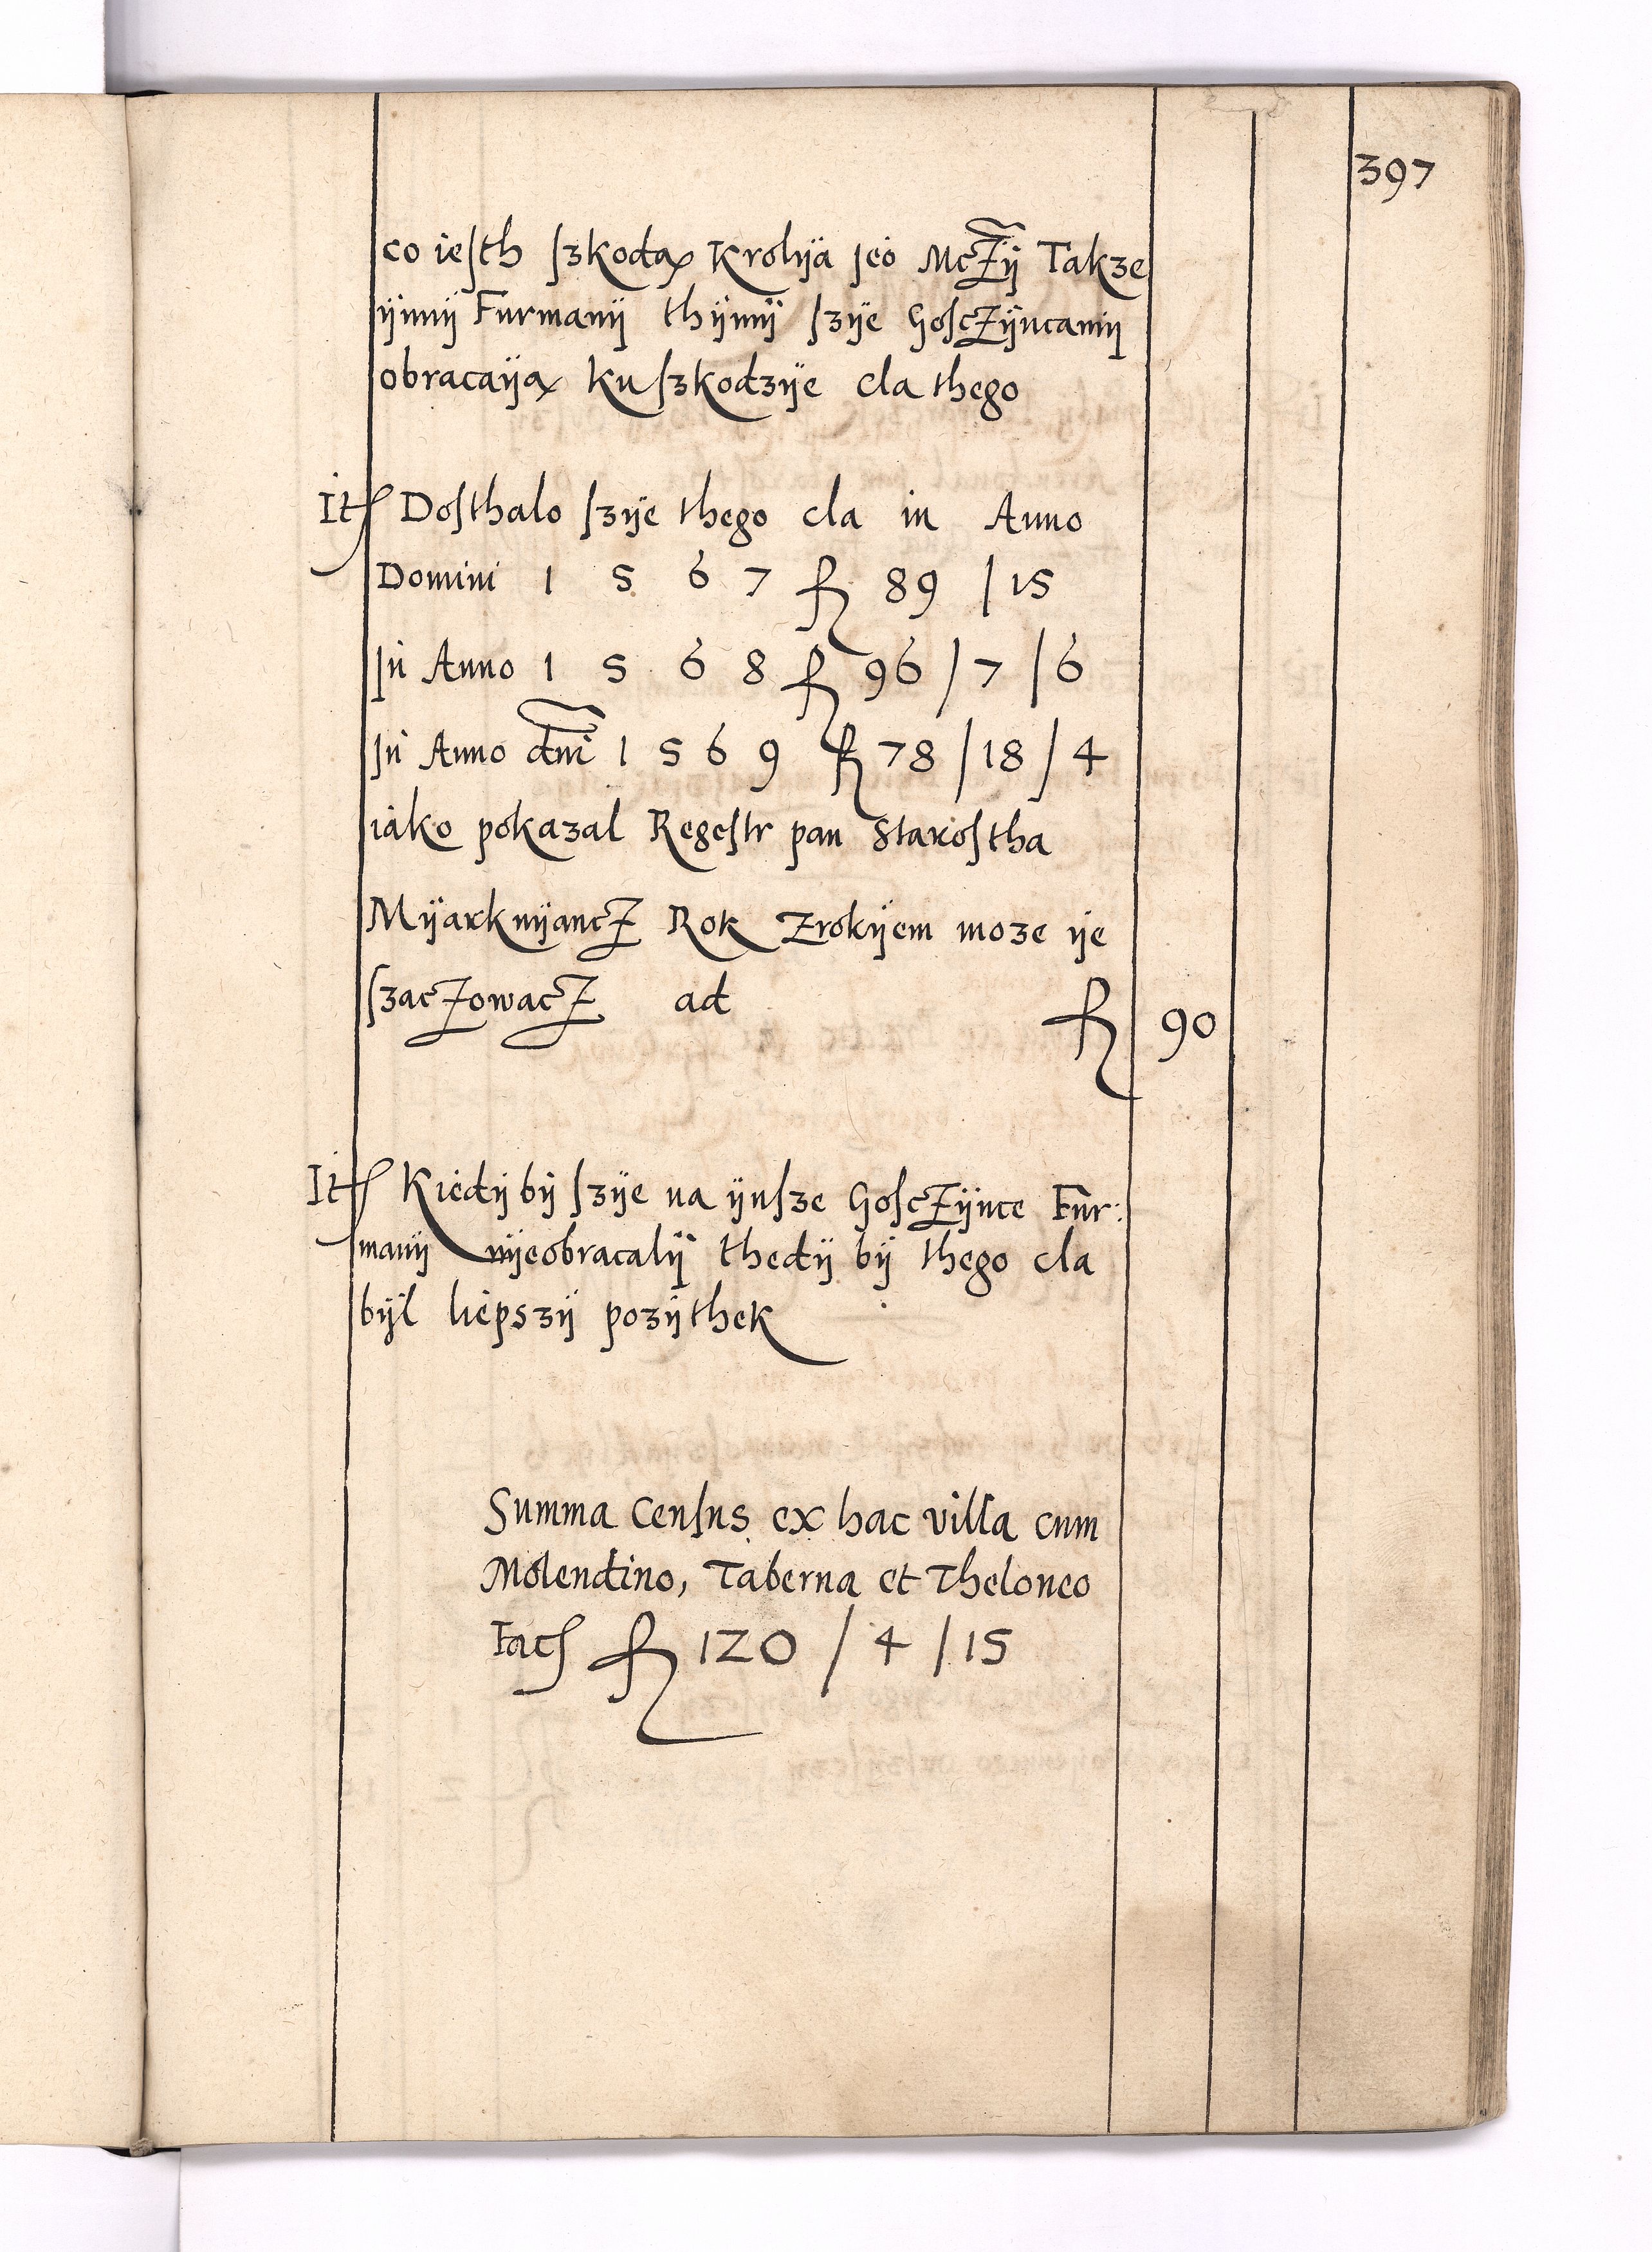 397
co iesth szkodą Krolya jeo Mczy Takze
ynny Furmany thymy szye Gosczyncamy
obracayą ku szkodzye cla thego
It Dosthalo szye thego cla in Anno
Domini 1 5 6 7 fl 89 / 15
In Anno 1 5 6 8 fl 96 / 7 / 6
In Anno dni 1 5 6 9 fl 78 / 18 / 4
iako pokazal Regestr pan Starostha
Myarkuyancz Rok Zrokyem moze ye
szaczowacz ad fl 90
It Kiedy by szye na ynsze Gosczynce Fur:
many nyeobracaly thedy by thego cla
byl liepszy pozythek
Summa Census ex hac villa cum
Molendino, Taberna et Theloneo
Fac fl 120 / 4 / 15